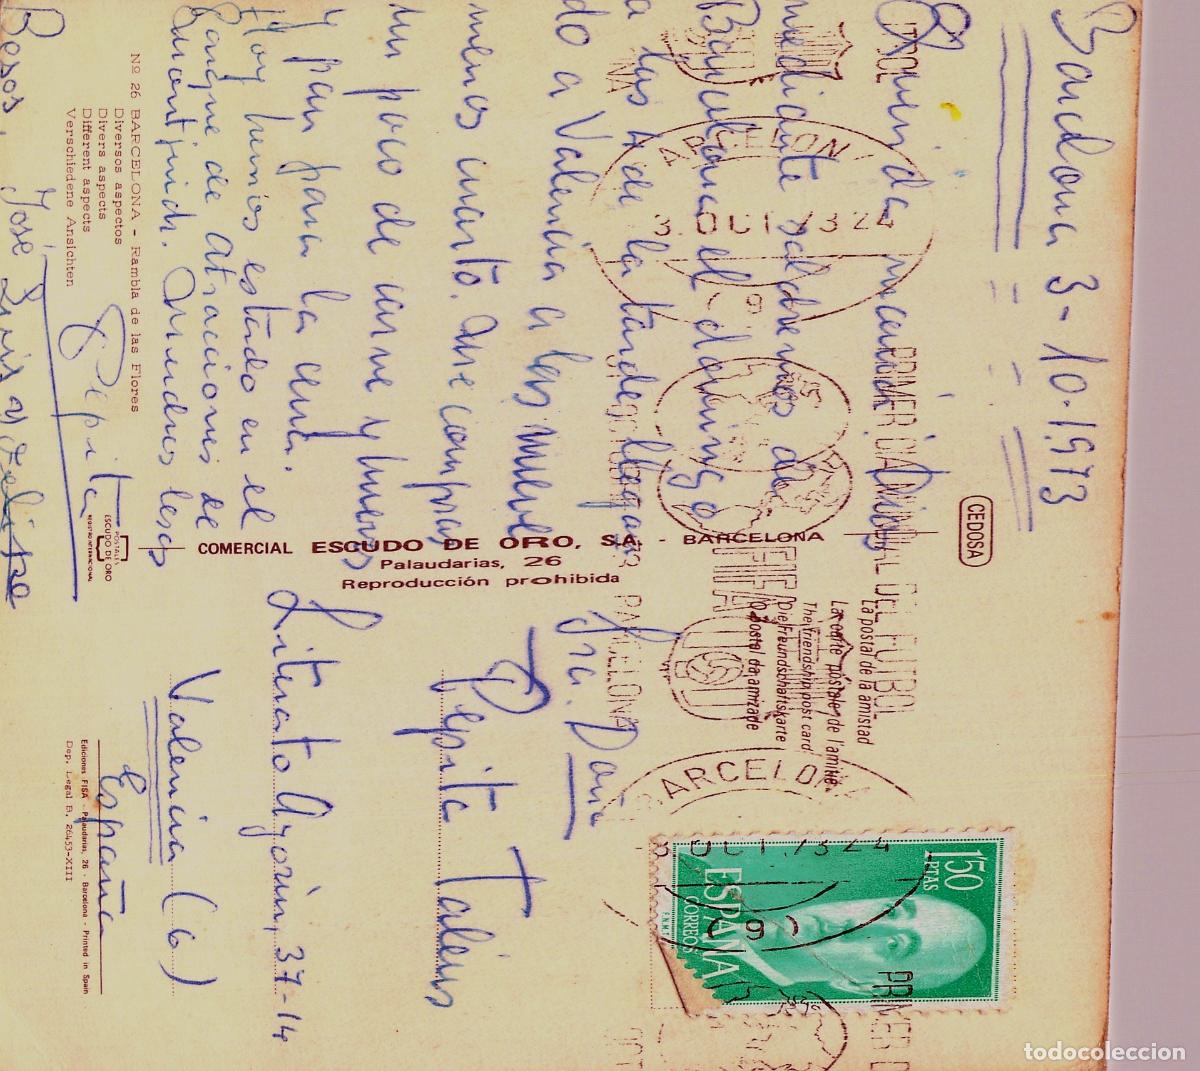 Barcelona 3-10-1973
Querida mamá: Dios
mediante saldremos de
Barcelona el domingo
a las 4 de la tarde llegan
do a Valencia a las nueve
menos cuarto. Me compras
un poco de carne y huevos
y pan para la cena.
Hoy hemos estado en el
Parque de Atracciones de
Montjuich. Muchos besos
Pepita
Besos, José Luis y Felipe
Nº 26 BARCELONA - Rambla de las Flores
Diversos aspectos
Divers aspects
Different aspects
Verschiedene Ansichten
POSTALES
ESCUDO DE ORO
REGISTRO INTERNACIONAL
CEDOSA
COMERCIAL ESCUDO DE ORO, S.A. - BARCELONA
Palaudarias, 26
Reproducción prohibida
La postal de la amistad
La carte postale de l'amitié
The friendship post card
Die Freundschaftskarte
O postal da amizade
BARCELONA
3 OCT. 73 24
9
PRIMER DIA MUNDIAL DEL FUTBOL
FIFA
BARCELONA
BARCELONA
3 OCT. 73 24
9
PRIMER D
1'50
PTAS
ESPAÑA
CORREOS
F.N.M.T.
Sra. Dña
Pepita Talens
Literato Azorín, 37-14
Valencia (6)
España
Ediciones FISA - Palaudarias, 26 - Barcelona - Printed in Spain
Dep. Legal B. 26453-XIII
todocoleccion